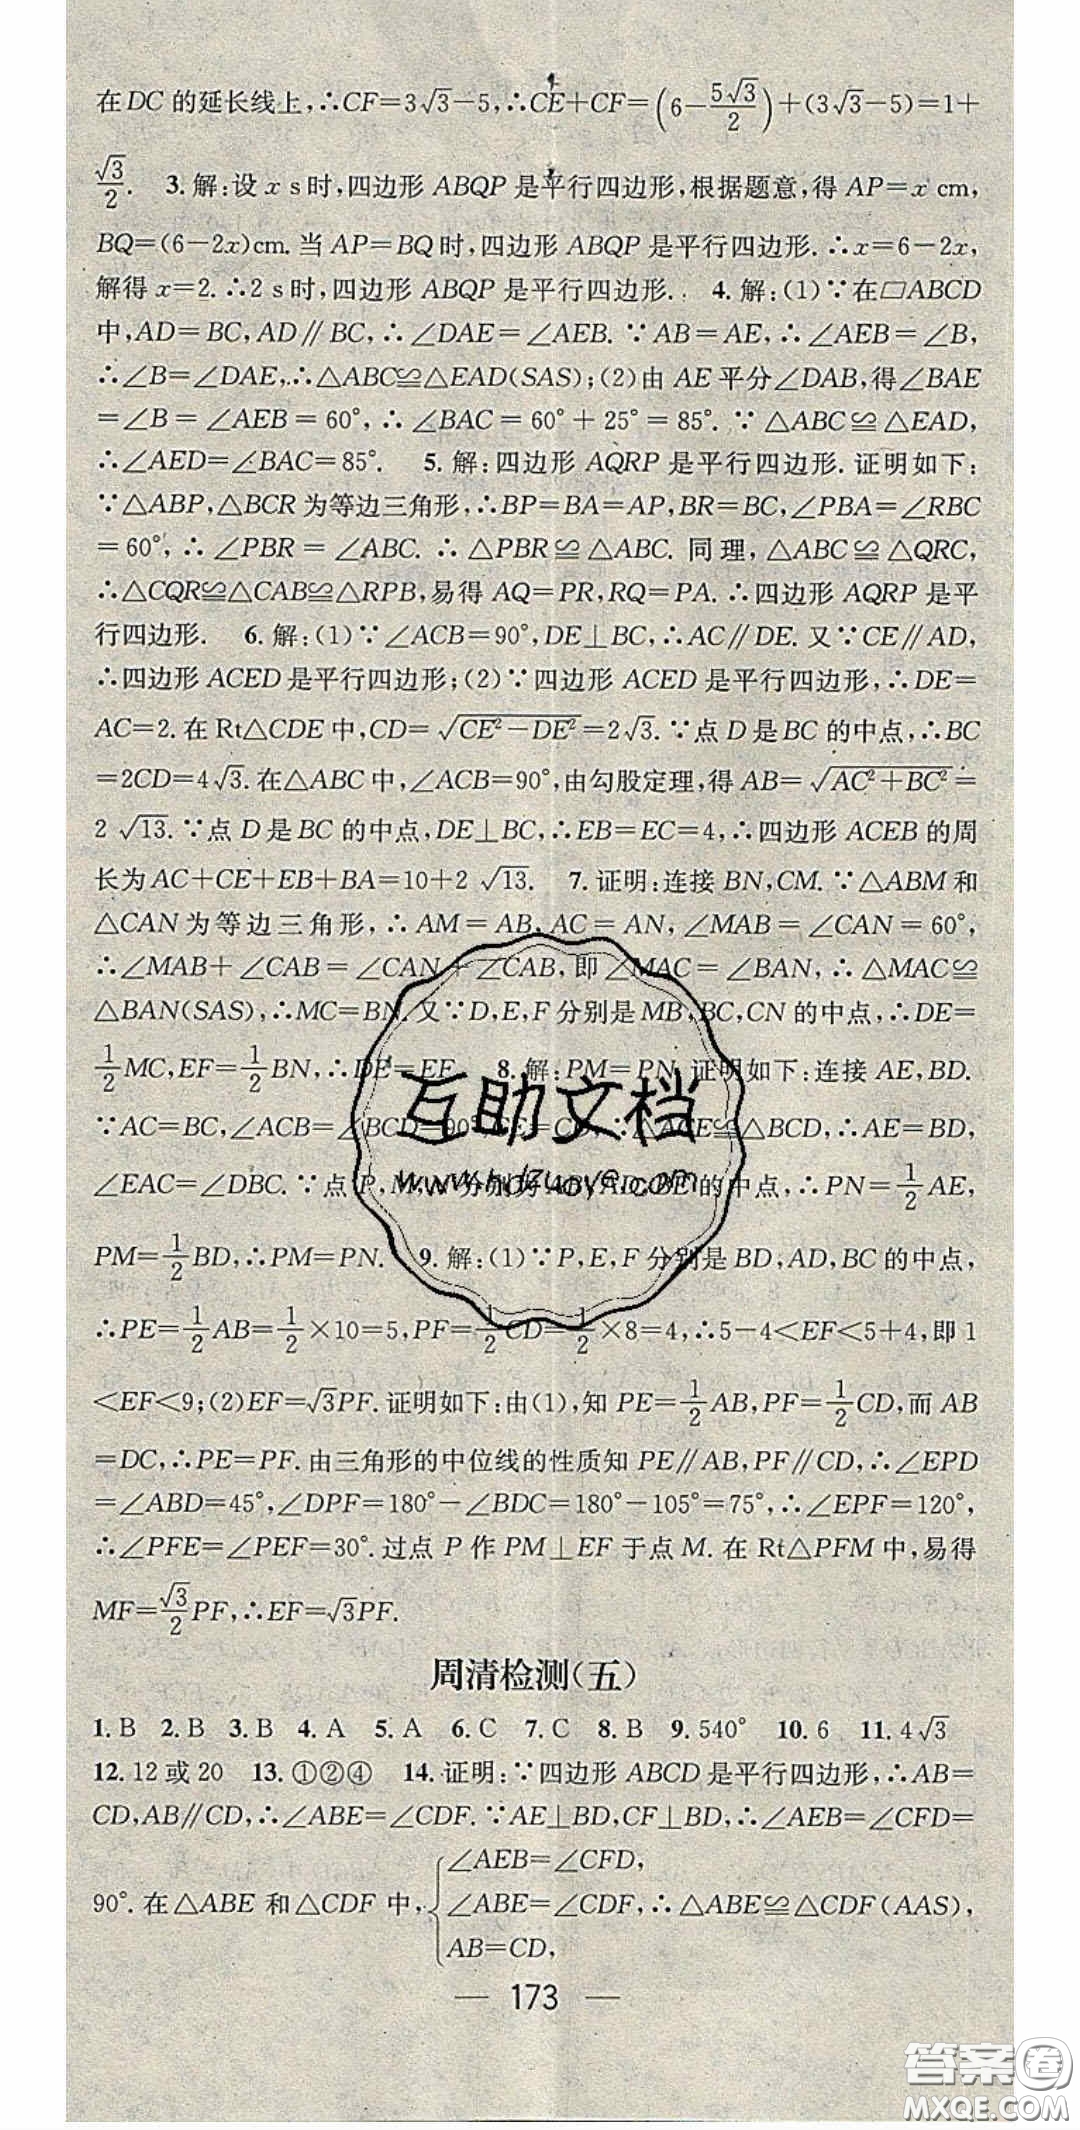 在DC的延长线上,∴CF=3√3-5,∴CE+CF=(6-5√3/2)+(3√3-5)=1+
√3/2. 3.解:设x s时,四边形ABQP是平行四边形,根据题意,得AP=x cm,
BQ=(6-2x)cm.当AP=BQ时,四边形ABQP是平行四边形.∴x=6-2x,
解得x=2.∴2 s时,四边形ABQP是平行四边形. 4.解:(1)∵在▱ABCD
中,AD=BC,AD∥BC,∴∠DAE=∠AEB.∵AB=AE,∴∠AEB=∠B,
∴∠B=∠DAE,∴△ABC≌△EAD(SAS);(2)由AE平分∠DAB,得∠BAE
=∠B=∠AEB=60°,∴∠BAC=60°+25°=85°.∵△ABC≌△EAD,
∴∠AED=∠BAC=85°. 5.解:四边形AQRP是平行四边形.证明如下:
∵△ABP,△BCR为等边三角形,∴BP=BA=AP,BR=BC,∠PBA=∠RBC
=60°,∴∠PBR=∠ABC.∴△PBR≌△ABC.同理,△ABC≌△QRC,
∴△CQR≌△CAB≌△RPB,易得AQ=PR,RQ=PA.∴四边形AQRP是平
行四边形. 6.解:(1)∵∠ACB=90°,DE⊥BC,∴AC∥DE.又∵CE∥AD,
∴四边形ACED是平行四边形;(2)∵四边形ACED是平行四边形,∴DE=
AC=2.在Rt△CDE中,CD=√(CE²-DE²)=2√3.∵点D是BC的中点,∴BC
=2CD=4√3.在△ABC中,∠ACB=90°,由勾股定理,得AB=√(AC²+BC²)=
2√13.∵点D是BC的中点,DE⊥BC,∴EB=EC=4,∴四边形ACEB的周
长为AC+CE+EB+BA=10+2√13. 7.证明:连接BN,CM.∵△ABM和
△CAN为等边三角形,∴AM=AB,AC=AN,∠MAB=∠CAN=60°,
∴∠MAB+∠CAB=∠CAN+∠CAB,即∠MAC=∠BAN,∴△MAC≌
△BAN(SAS),∴MC=BN.又∵D,E,F分别是MB,BC,CN的中点,∴DE=
1/2MC,EF=1/2BN,∴DE=EF. 8.解:PM=PN.证明如下:连接AE,BD.
∵AC=BC,∠ACB=∠BCD=90°,CE=CD,∴△ACE≌△BCD,∴AE=BD,
∠EAC=∠DBC.∵点P,M,N分别为AB,AD,BE的中点,∴PN=1/2AE,
PM=1/2BD,∴PM=PN. 9.解:(1)∵P,E,F分别是BD,AD,BC的中点,
∴PE=1/2AB=1/2×10=5,PF=1/2CD=1/2×8=4,∴5-4<EF<5+4,即1
<EF<9;(2)EF=√3PF.证明如下:由(1),知PE=1/2AB,PF=1/2CD,而AB
=DC,∴PE=PF.由三角形的中位线的性质知PE∥AB,PF∥CD,∴∠EPD
=∠ABD=45°,∠DPF=180°-∠BDC=180°-105°=75°,∴∠EPF=120°,
∴∠PFE=∠PEF=30°.过点P作PM⊥EF于点M.在Rt△PFM中,易得
MF=√3/2PF,∴EF=√3PF.
周清检测(五)
1. B 2. B 3. B 4. A 5. A 6. C 7. C 8. B 9. 540° 10. 6 11. 4√3
12. 12或20 13. ①②④ 14.证明:∵四边形ABCD是平行四边形,∴AB=
CD,AB∥CD,∴∠ABE=∠CDF.∵AE⊥BD,CF⊥BD,∴∠AEB=∠CFD=
∠AEB=∠CFD,
90°.在△ABE和△CDF中,{∠ABE=∠CDF,∴△ABE≌△CDF(AAS),
AB=CD,
— 173 —
互助文档
www.hdzuoye.com
答案圈
MXQE.COM